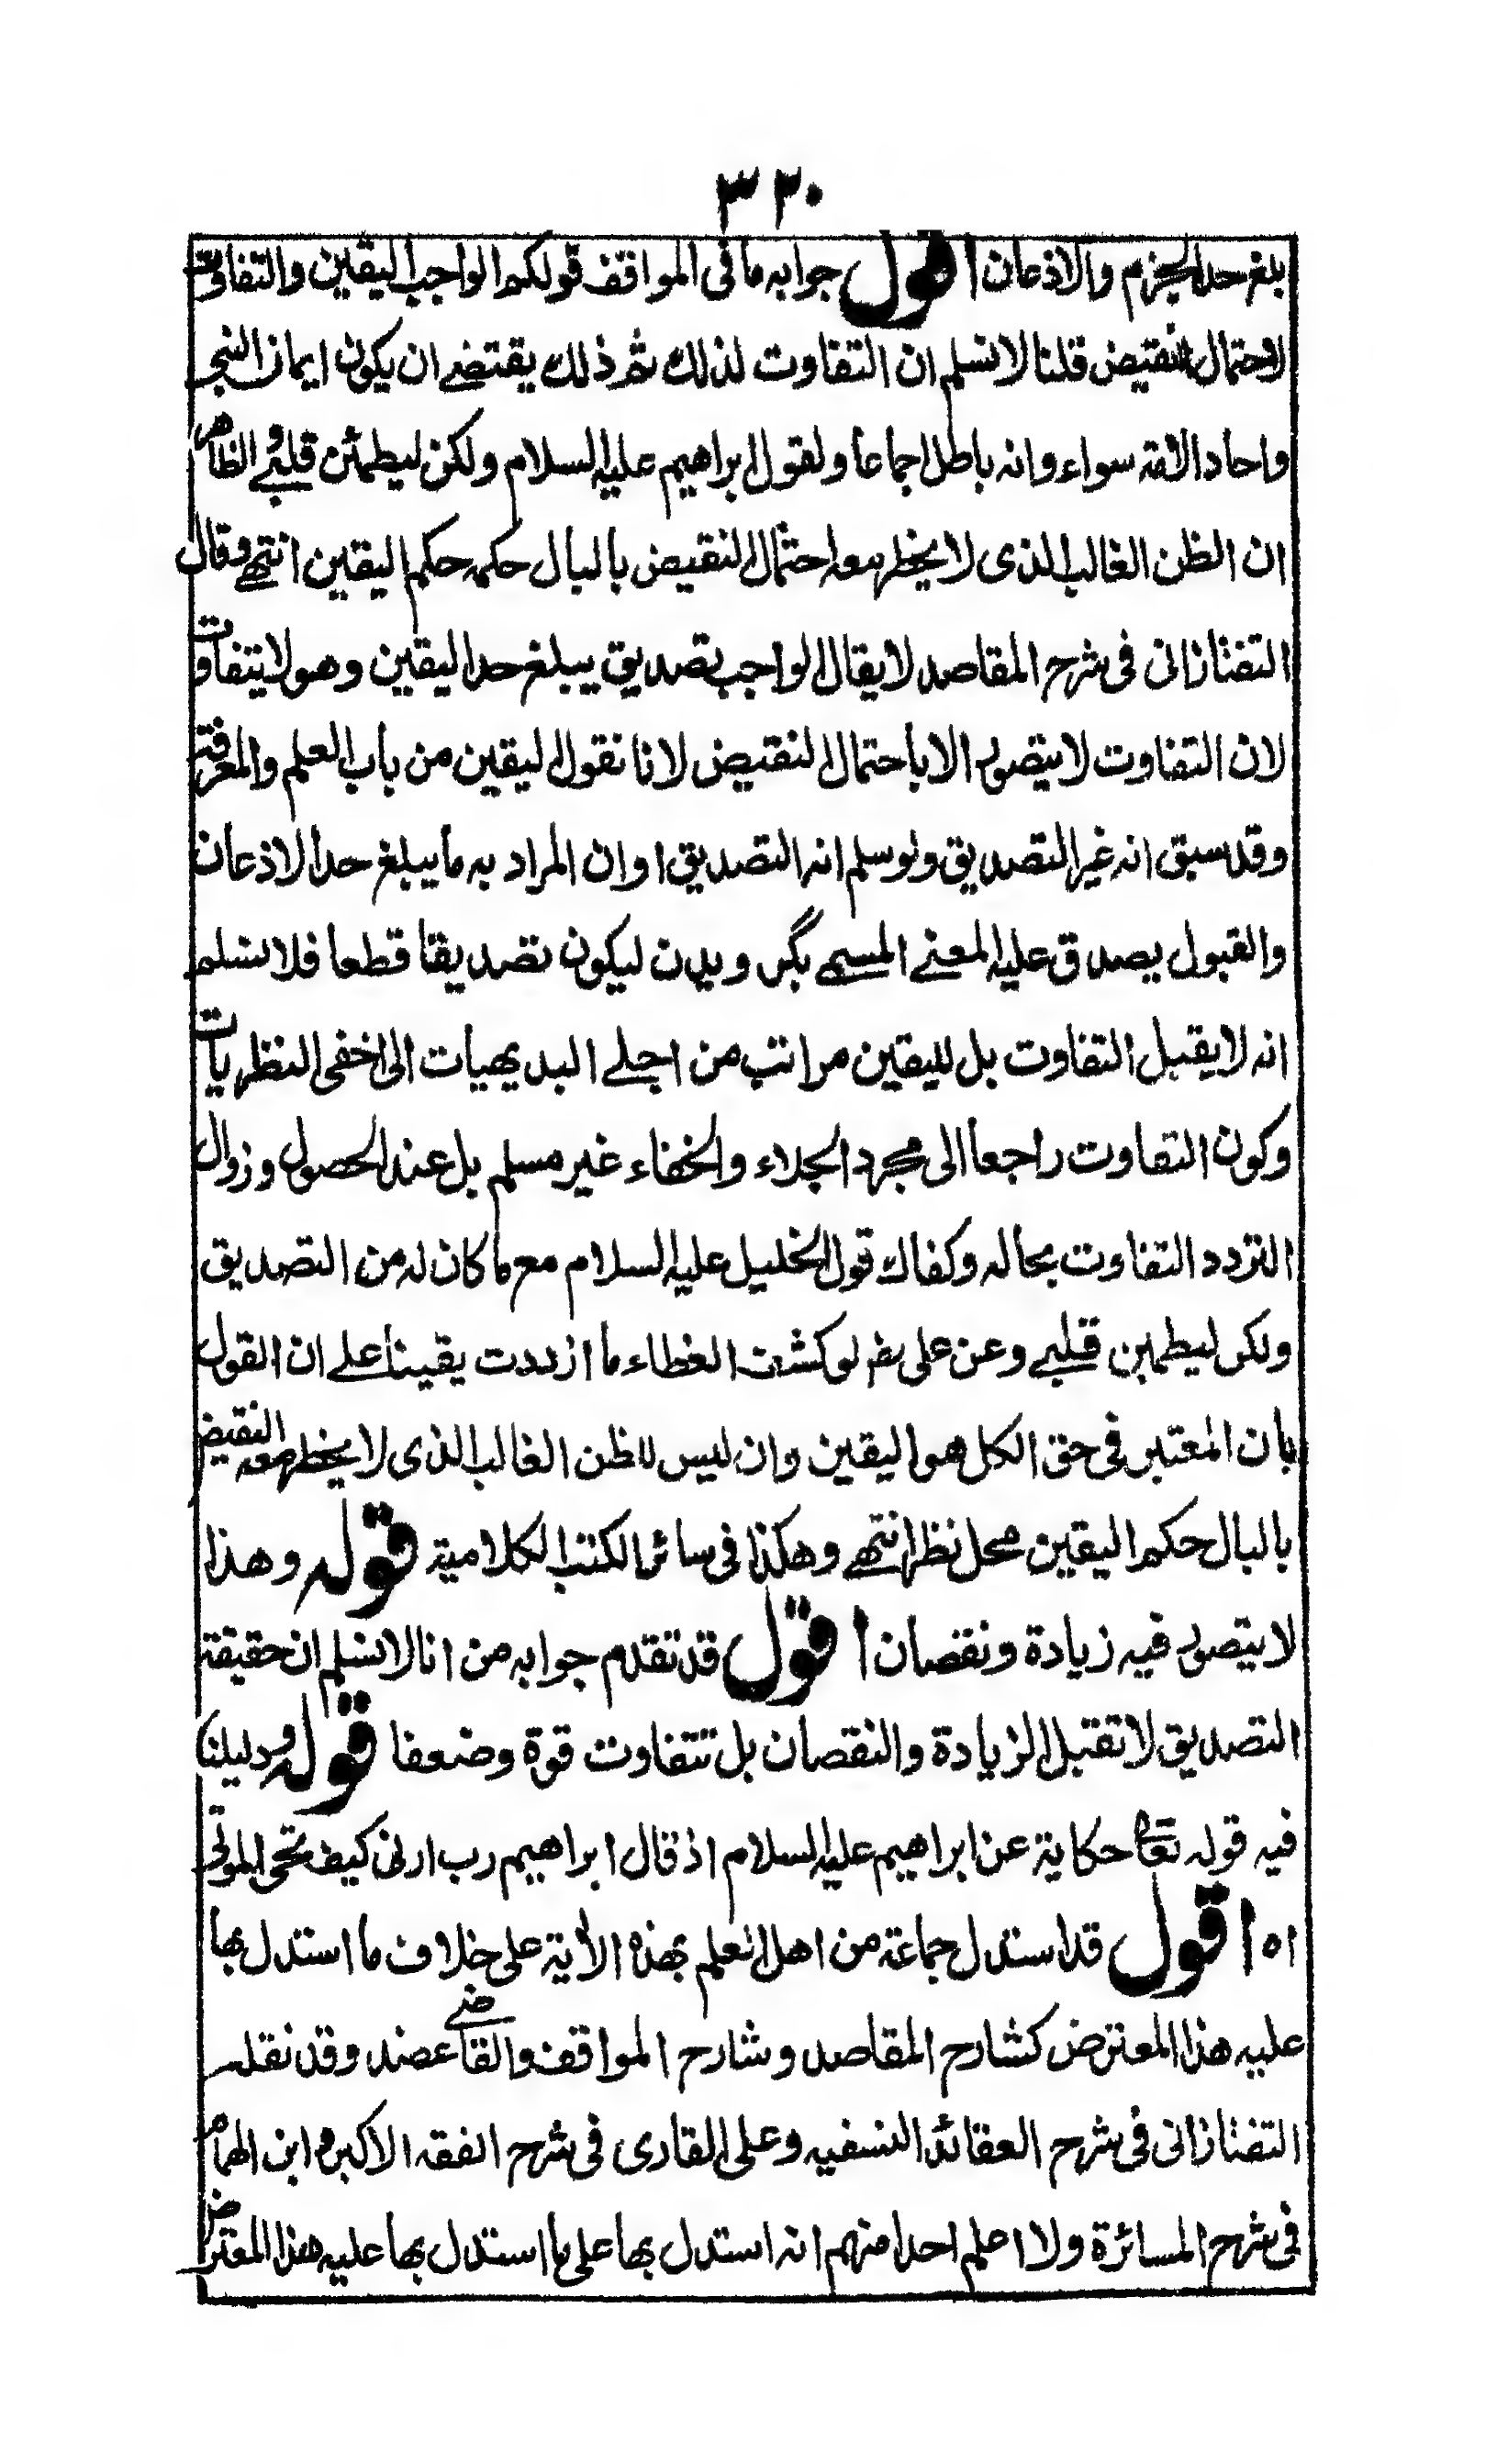 ٣٢٠
بلغ حد الجزم والاذعان اقول جوابه ما فى المواقف قولكم الواجب اليقين والتفاوت
لاحتمال النقيض قلنا لا نسلم ان التفاوت لذلك ثم ذلك يقتضے ان يكون ايمان النبى
واحاد الامة سواء وانه باطل اجماعا ولقول ابراهيم عليه السلام ولكن ليطمئن قلبے والظاهر
ان الظن الغالب الذى لا يخطر معه احتمال النقيض بالبال حكمه حكم اليقين انتهے وقال
التفتازانى فى شرح المقاصد لا يقال الواجب تصديق يبلغ حد اليقين وهو لا يتفاوت
لان التفاوت لا يتصور الا باحتمال النقيض لانا نقول اليقين من باب العلم والمعرفة
وقد سبق انه غير التصديق ولو سلم انه التصديق او ان المراد به ما يبلغ حد الاذعان
والقبول يصدق عليه المعنے المسمے بگرويدن ليكون تصديقا قطعا فلا نسلم
انه لا يقبل التفاوت بل لليقين مراتب من اجلے البديهيات الى اخفى النظريات
وكون التفاوت راجعا الى مجرد الجلاء والخفاء غير مسلم بل عند الحصول وزوال
التردد التفاوت بحاله وكفاك قول الخليل عليه السلام مع ما كان له من التصديق
ولكن ليطمين قلبے وعن على رضه لو كشف الغطاء ما ازددت يقينا علے ان القول
بان المعتبر فى حق الكل هو اليقين وان ليس للظن الغالب الذى لا يخطر معه النقيض
بالبال حكم اليقين محل نظر انتهے وهكذا فى سائر الكتب الكلامية قوله وهذا
لا يتصور فيه زيادة ونقصان اقول قد تقدم جوابه من انا لا نسلم ان حقيقة
التصديق لا تقبل الزيادة والنقصان بل تتفاوت قوة وضعفا قوله ودليلنا
فيه قوله تعالى حكاية عن ابراهيم عليه السلام اذ قال ابراهيم رب ارنى كيف تحى الموتى
اه اقول قد استدل جماعة من اهل العلم بهذه الاية على خلاف ما استدل بها
عليه هذا المعترض كشارح المقاصد وشارح المواقف والقاضے عضد وقد نقله
التفتازانى فى شرح العقائد النسفيه وعلى القارى فى شرح الفقه الاكبر وابن الهمام
فى شرح المسائرة ولا اعلم احدا منهم انه استدل بها على ما استدل بها عليه هذا المعترض